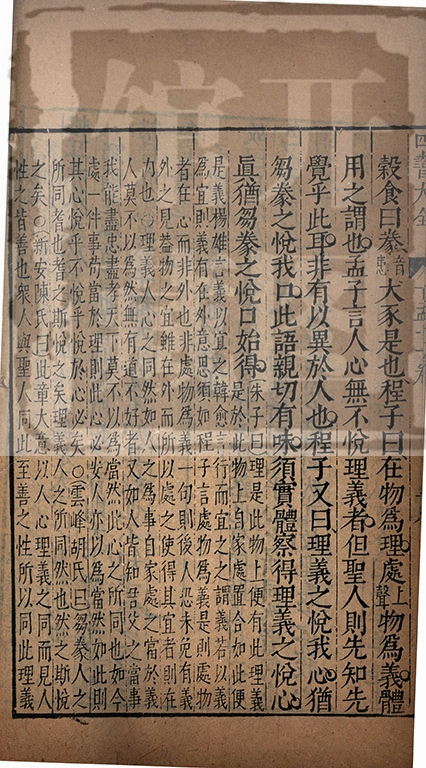 四書大全
穀食曰豢音患犬豕是也程子曰在物爲理處上聲物爲義體
用之謂也孟子言人心無不悅理義者但聖人則先知先
覺乎此耳非有以異於人也程子又曰理義之悅我心猶
芻豢之悅我口此語親切有味須實體察得理義之悅心
眞猶芻豢之悅口始得
朱子曰理是此物上便有此理義
是於此物上自家處置合如此便
是義楊雄言義以宜之韓愈言行而宜之之謂義若以義
爲宜則義有在外意思須如程子言處物爲義是則處物
者在心而非外也非處物爲義一句則後人恐未免有義
外之見蓋物之宜雖在外而所以處之使得其宜者則在
內也○理義人心之同然如人之爲事自家處之當於義
人莫不以爲然無有道不好者又如人皆知君父之當事
我能盡忠盡孝天下莫不以爲當然此心之所同也如今
處一件事苟當於理則此心必安人亦以爲當然如此則
其心悅乎不悅乎悅於心必矣○雲峰胡氏曰芻豢人之
所同耆也耆之斯悅之矣理義人之所同然也然之斯悅
之矣○新安陳氏曰此章大意以人心理義之同而見人
性之皆善也衆人與聖人同此至善之性所以同此理義